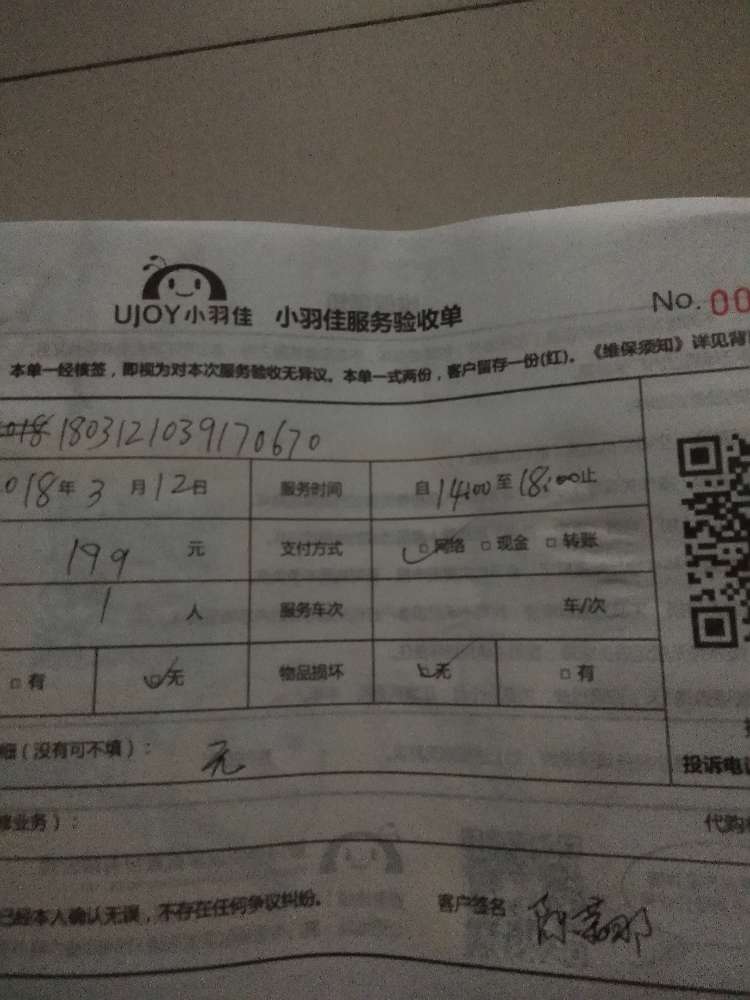 UJOY小羽佳 小羽佳服务验收单 No. 00
本单一经核签,即视为对本次服务验收无异议。本单一式两份,客户留存一份(红)。《维保须知》详见背
2018 1803121039170670
018年3月12日 服务时间 自14:00至18:00止
199元 支付方式 □网络 □现金 □转账
1人 服务车次 车/次
□有 □无 物品损坏 □无 □有
细(没有可不填): 无
投诉电
修业务): 代购
已经本人确认无误,不存在任何争议纠纷。 客户签名: